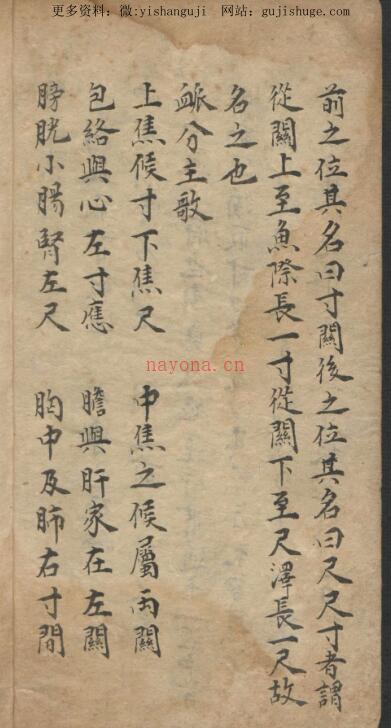 更多资料：微:yishanguji　网站：gujishuge.com
前之位其名曰寸關後之位其名曰尺尺寸者謂
從關上至魚際長一寸從關下至尺澤長一尺故
名之也
脈分主歌
上焦候寸下焦尺　中焦之候屬兩關
包絡與心左寸應　膽與肝家在左關
膀胱小腸腎左尺　胸中及肺右寸間
nayona.cn